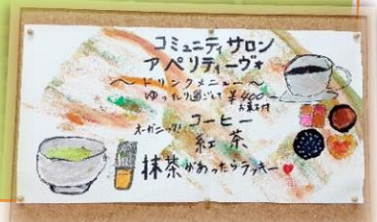 コミュニティサロン
アペリティーヴォ
〜ドリンクメニュー〜
ゆったり過ごして ¥400
お菓子付
コーヒー
オーガニック!
紅茶
抹茶があったらラッキー♥